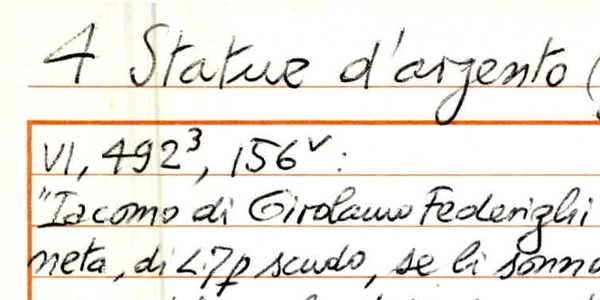 4 Statue d'argento (
VI, 492³, 156ᵛ:
"Iacomo di Girolamo Federighi
neta, di L. 7 p scudo, se li sonno